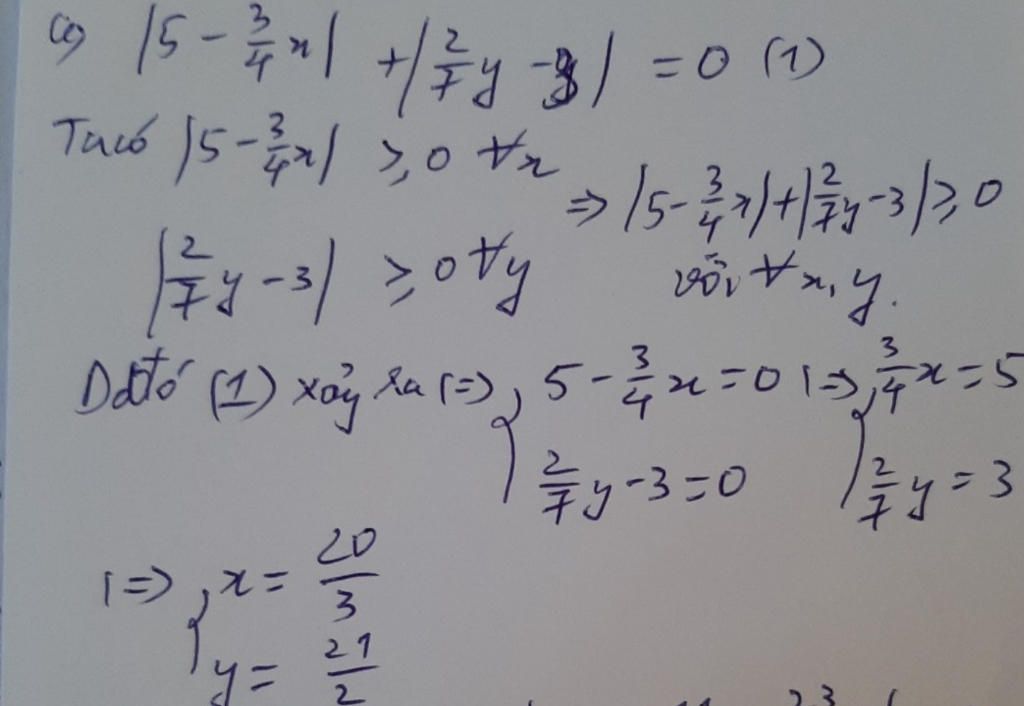 c, |5 - 3/4 x| + |2/7 y - 3| = 0 (1)
Ta có |5 - 3/4 x| ≥ 0 ∀x
|2/7 y - 3| ≥ 0 ∀y
=> |5 - 3/4 x| + |2/7 y - 3| ≥ 0
với ∀x, y.
Do đó (1) xảy ra <=> { 5 - 3/4 x = 0 <=> { 3/4 x = 5
2/7 y - 3 = 0 2/7 y = 3
<=> { x = 20/3
y = 21/2